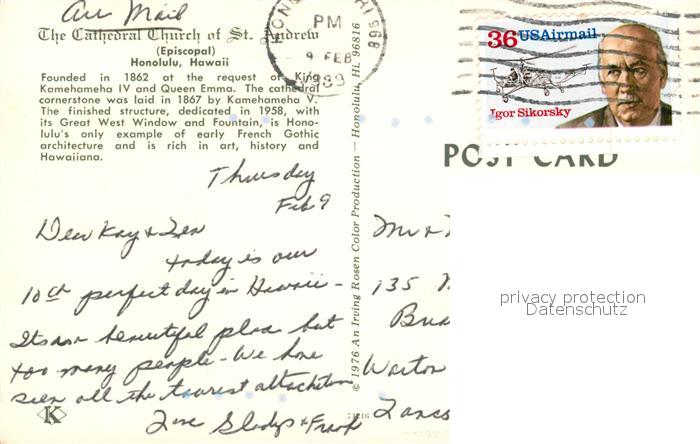 Air Mail
The Cathedral Church of St. Andrew
(Episcopal)
Honolulu, Hawaii
Founded in 1862 at the request of King
Kamehameha IV and Queen Emma. The cathedral
cornerstone was laid in 1867 by Kamehameha V.
The finished structure, dedicated in 1958, with
its Great West Window and Fountain, is Hono-
lulu's only example of early French Gothic
architecture and is rich in art, history and
Hawaiiana.
Thursday
Feb 9
Dear Kay &
today is our
10th perfect day in Hawaii -
Its a beautiful place but
too many people - We have
seen all the tourist attachtions
Love Gladys & Frank
K
© 1976 An Irving Rosen Color Production — Honolulu, Hi. 96816
PM
9 FEB
1989
968
36 USAirmail
Igor Sikorsky
POST CARD
Mr &
135
Warton
privacy protection
Datenschutz